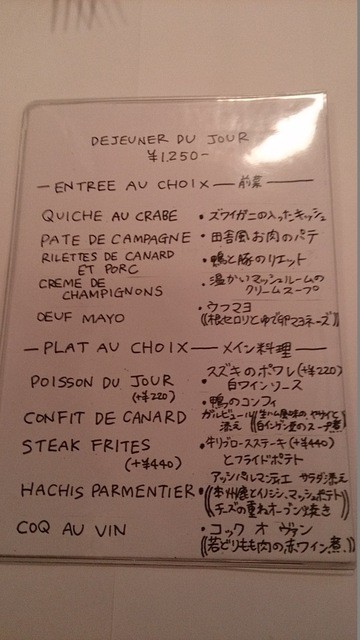 DEJEUNER DU JOUR
¥1,250-
— ENTREE AU CHOIX — 前菜 —
QUICHE AU CRABE ・ズワイガニの入ったキッシュ
PATE DE CAMPAGNE ・田舎風お肉のパテ
RILETTES DE CANARD ET PORC ・鴨と豚のリエット
CREME DE CHAMPIGNONS ・温かいマッシュルームの
クリームスープ
OEUF MAYO ・ウフマヨ
(根セロリとゆで卵マヨネーズ)
— PLAT AU CHOIX — メイン料理 —
POISSON DU JOUR (+¥220) ・スズキのポワレ (+¥220)
白ワインソース
CONFIT DE CANARD ・鴨のコンフィ
ガルビュール 添え (生ハム風味の、やさいと
白インゲン豆のスープ煮)
STEAK FRITES (+¥440) ・牛リブロースステーキ (+¥440)
とフライドポテト
アッシパルマンティエ サラダ添え
HACHIS PARMENTIER ・(本州鹿とイノシシ、マッシュポテト
チーズの重ねオーブン焼き)
COQ AU VIN ・コック オ ヴァン
(若どりもも肉の赤ワイン煮)